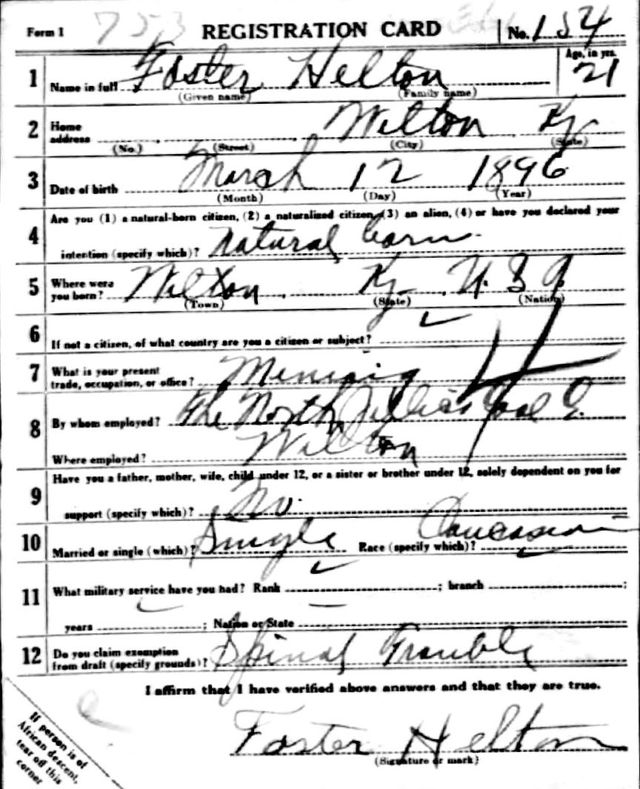 Form 1 753 REGISTRATION CARD No. 154
1 Name in full Foster Helton Age, in yrs. 21
(Given name) (Family name)
2 Home address Wilton Ky
(No.) (Street) (City) (State)
3 Date of birth March 12 1896
(Month) (Day) (Year)
Are you (1) a natural-born citizen, (2) a naturalized citizen, (3) an alien, (4) or have you declared your
4 intention (specify which)? natural born
5 Where were you born? Wilton Ky U S A
(Town) (State) (Nation)
6 If not a citizen, of what country are you a citizen or subject?
7 What is your present trade, occupation, or office? Mining
8 By whom employed? The North Jellico Coal Co.
Where employed? Wilton
Have you a father, mother, wife, child under 12, or a sister or brother under 12, solely dependent on you for
9 support (specify which)? No.
10 Married or single (which)? Single Race (specify which)? Caucasian
11 What military service have you had? Rank ; branch ;
years ; Nation or State
12 Do you claim exemption from draft (specify grounds)? Spinal Trouble
I affirm that I have verified above answers and that they are true.
Foster Helton
(Signature or mark)
If person is of
African descent,
tear off this
corner